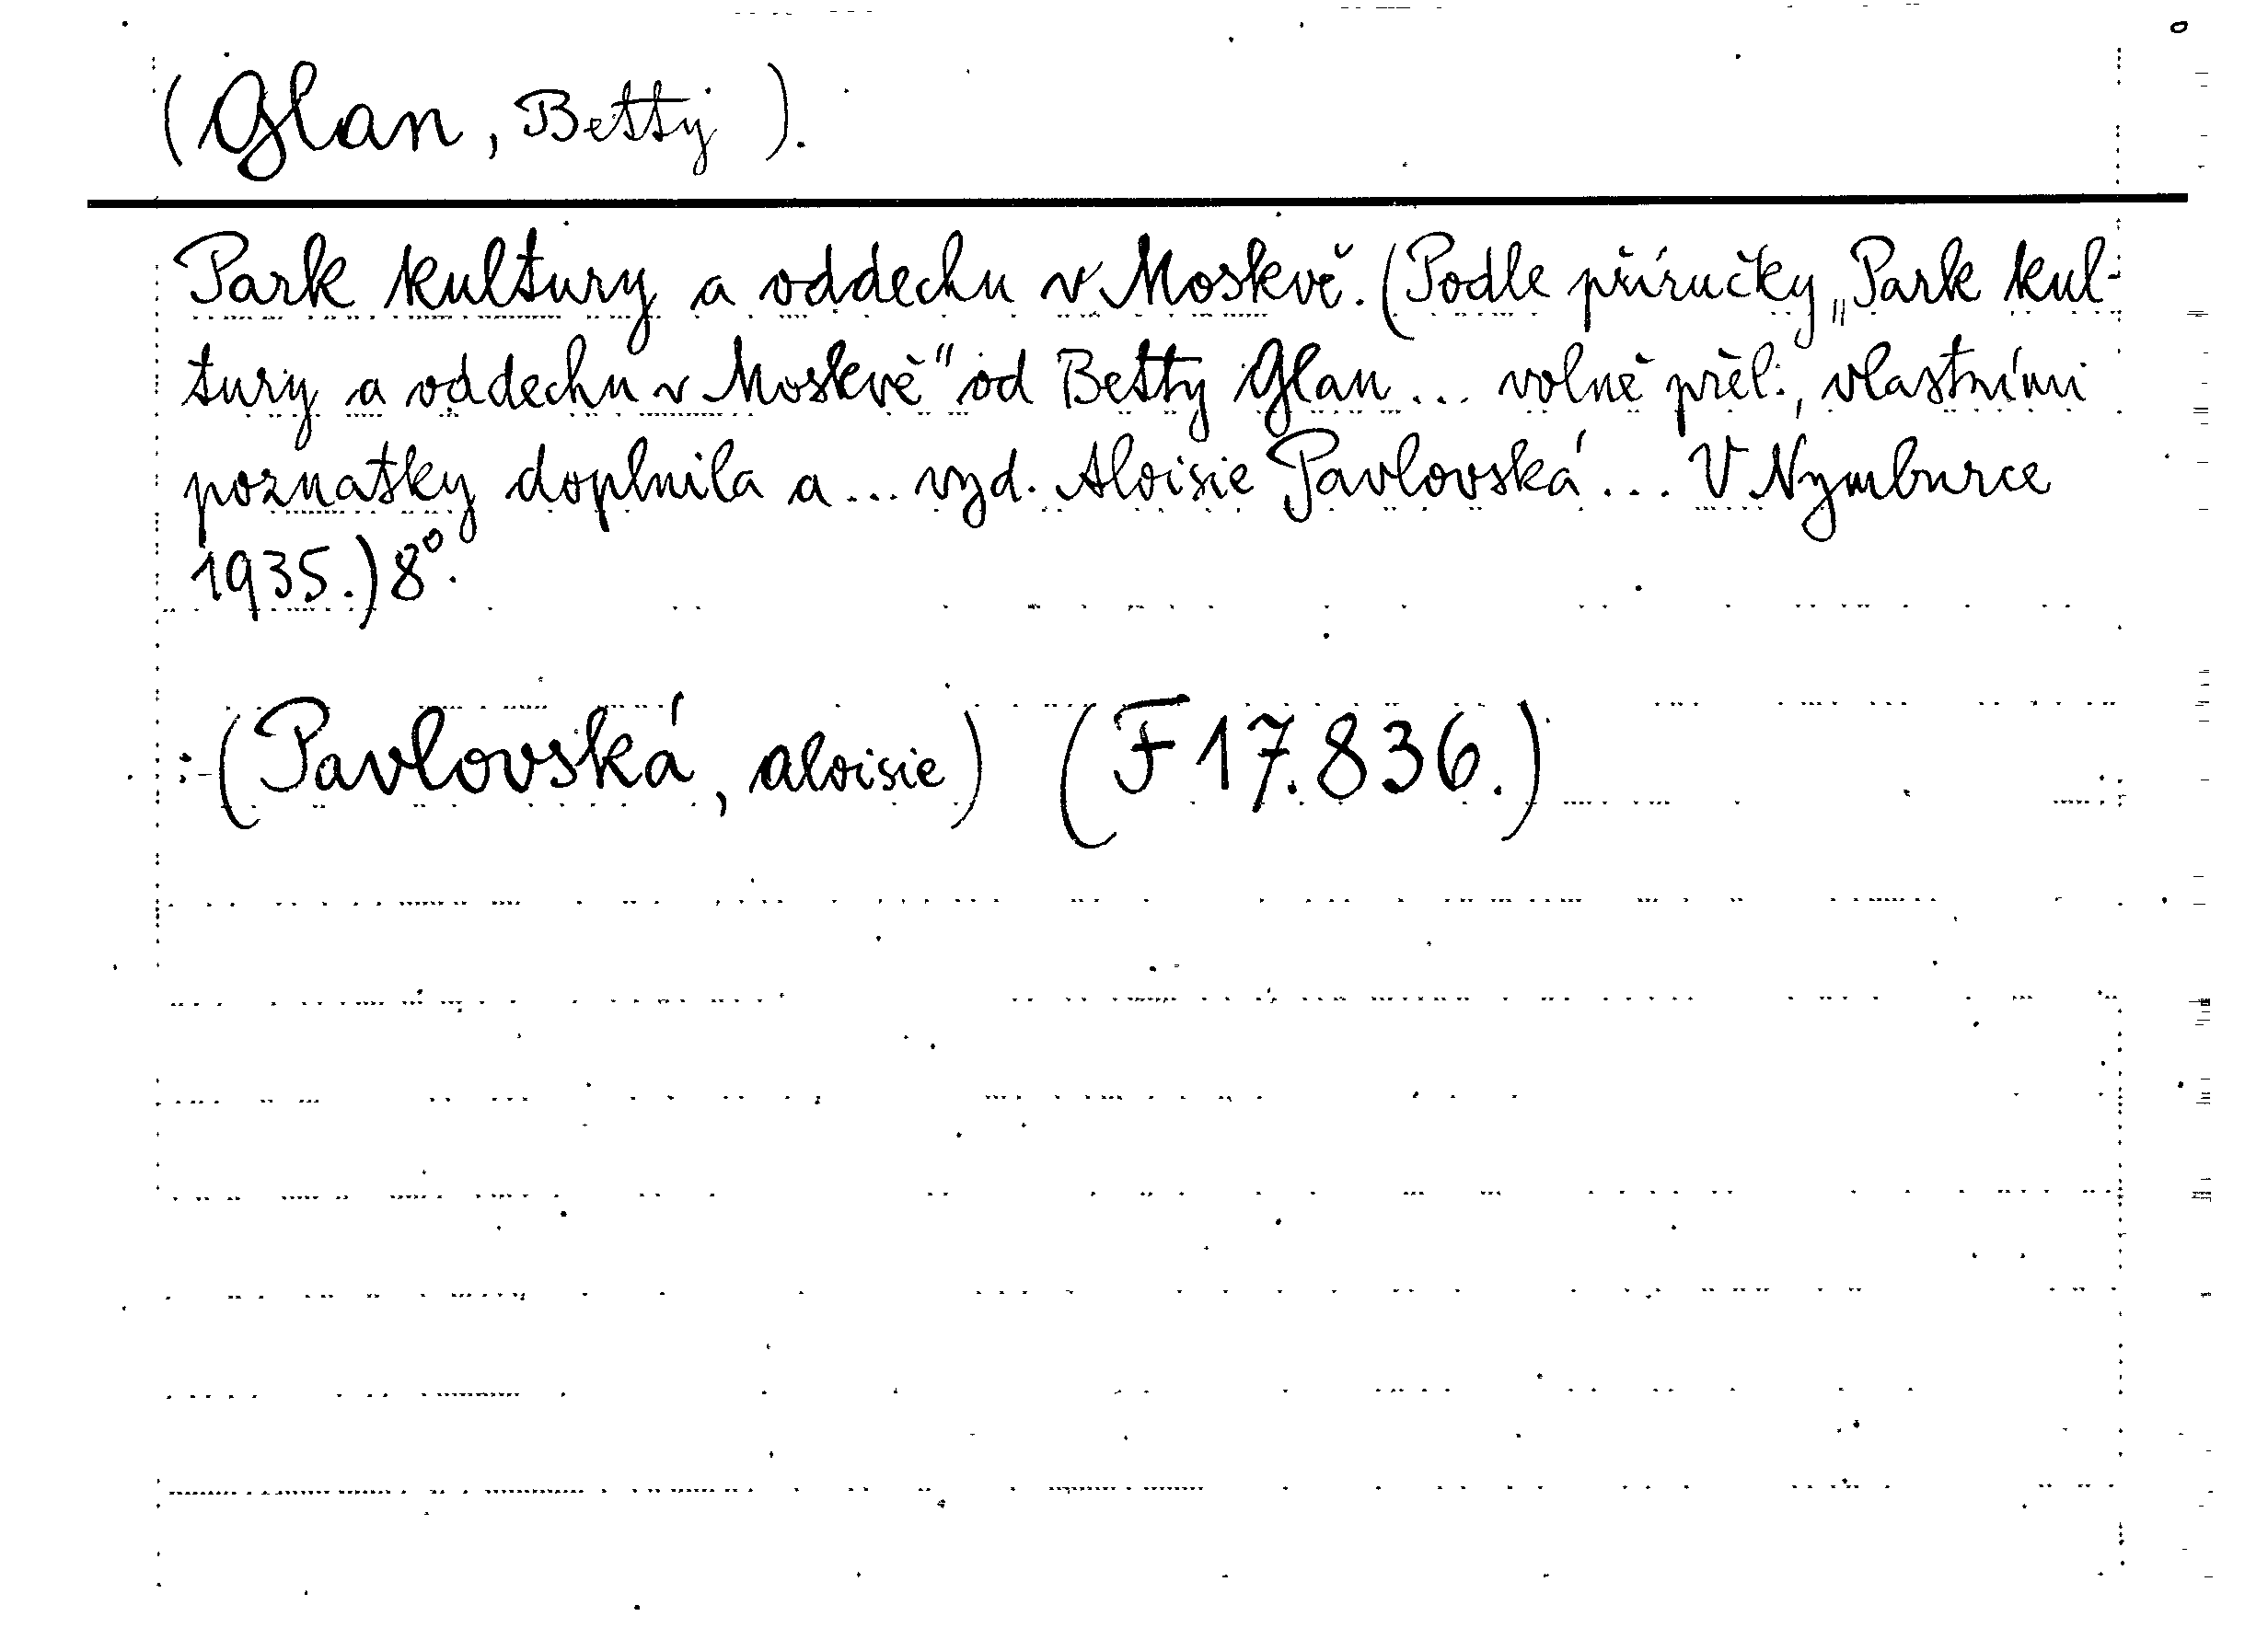 (Glan, Betty).
Park kultury a oddechu v Moskvě. (Podle příručky „Park kul-
tury a oddechu v Moskvě" od Betty Glan... volně přel., vlastními
poznatky doplnila a... vyd. Aloisie Pavlovská... V Nymburce
1935.) 8°.
:-(Pavlovská, Aloisie) (F 17.836.)